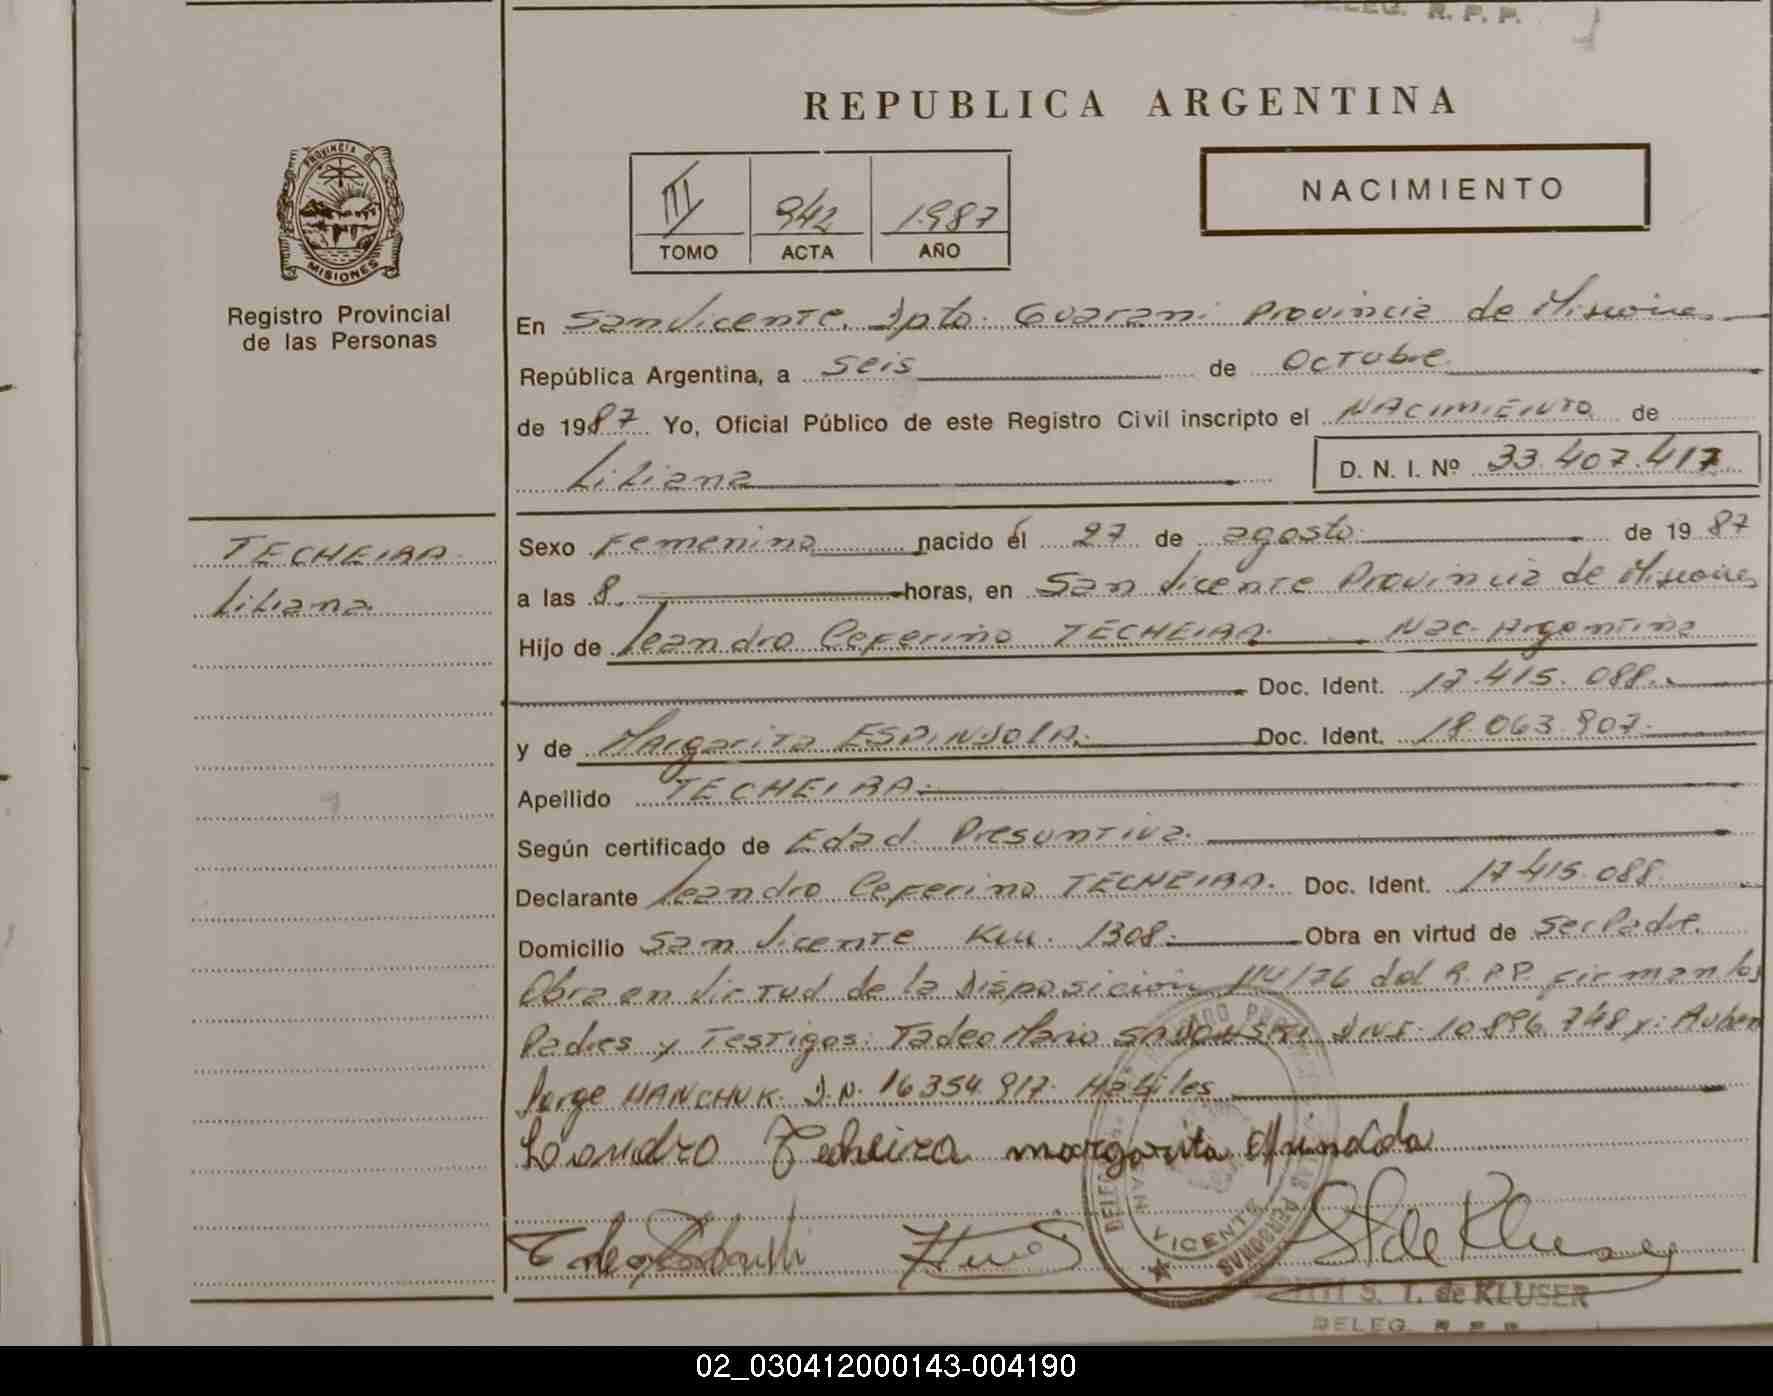 DELEG. R. P. P.
REPUBLICA ARGENTINA
PROVINCIA DE
MISIONES
Registro Provincial
de las Personas
III 942 1987
TOMO ACTA AÑO
NACIMIENTO
En San Vicente, Dpto. Guarani Provincia de Misiones
República Argentina, a seis de octubre
de 1987 Yo, Oficial Público de este Registro Civil inscripto el NACIMIENTO de
Liliana D. N. I. Nº 33.407.417
TECHEIRA
Liliana
Sexo Femenino nacido el 27 de agosto de 1987
a las 8. horas, en San Vicente Provincia de Misiones
Hijo de Leandro Ceferino TECHEIRA. Nac. Argentina
Doc. Ident. 17.415.088.
y de Margarita ESPINDOLA. Doc. Ident. 18.063.907.
Apellido TECHEIRA.
Según certificado de Edad Presuntiva.
Declarante Leandro Ceferino TECHEIRA. Doc. Ident. 17.415.088
Domicilio San Vicente Km. 1308. Obra en virtud de ser Padre.
Obra en virtud de la Disposición 114/76 del R.P.P. firman los
Padres y Testigos: Tadeo Mario D.N.I. 10.896.748 y: Ruben
Jorge HANCHUK. D.N. 16.354.917. Habiles
Leandro Techeira margarita
VICENTE
PERSONAS
S. T. de Kluser
S. T. de KLUSER
DELEG. R. P. P.
02_030412000143-004190